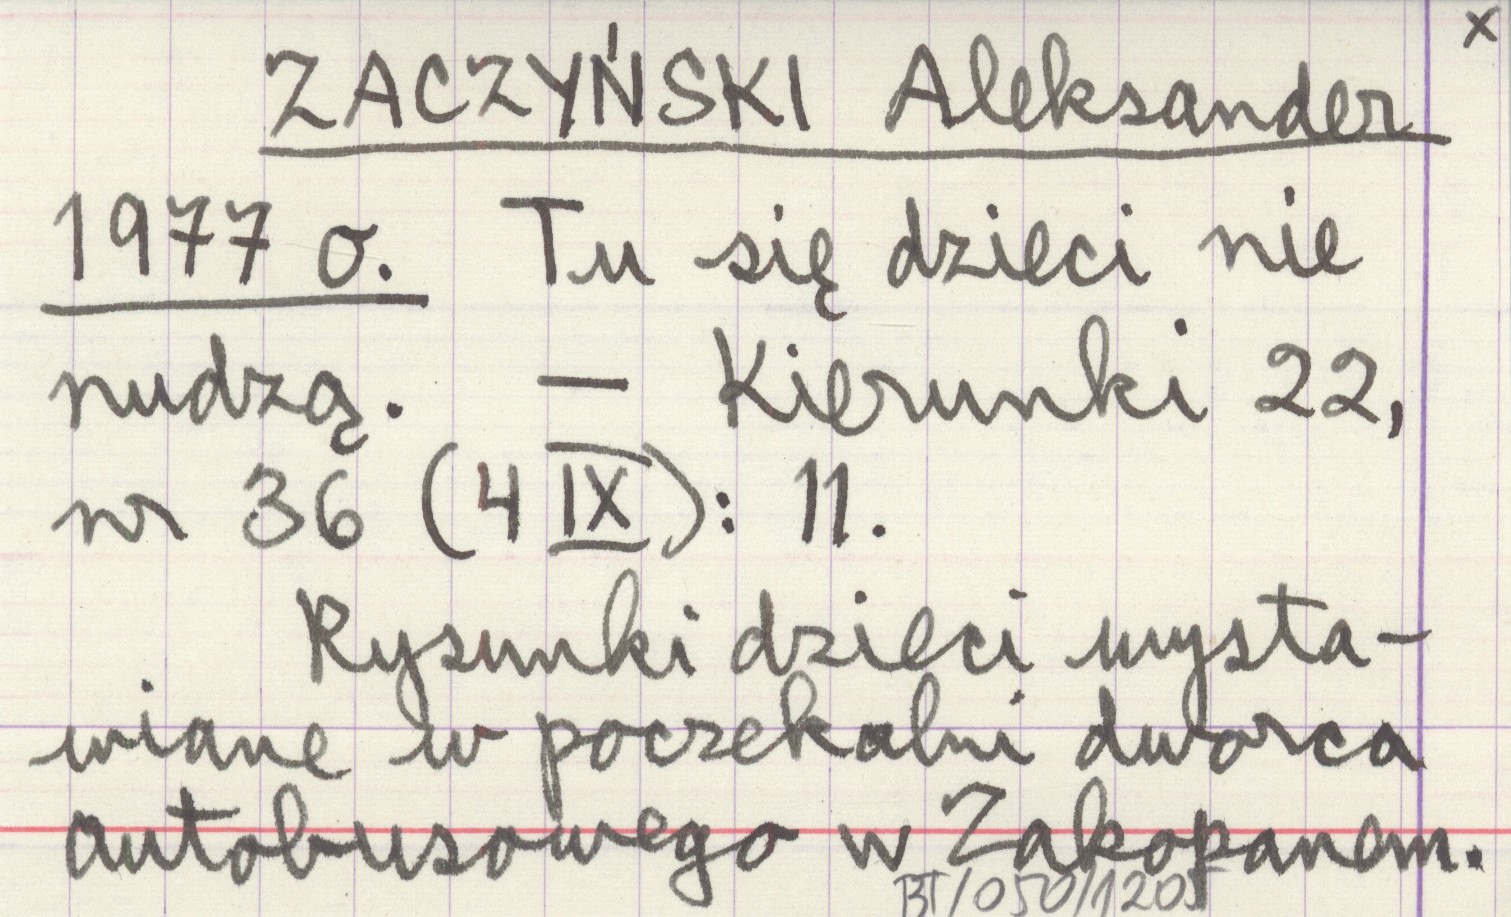 x
ZACZYŃSKI Aleksander
1977 o. Tu się dzieci nie
nudzą. — Kierunki 22,
nr 36 (4 IX): 11.
Rysunki dzieci wysta-
wiane w poczekalni dworca
autobusowego w Zakopanem.
BT/050/1205